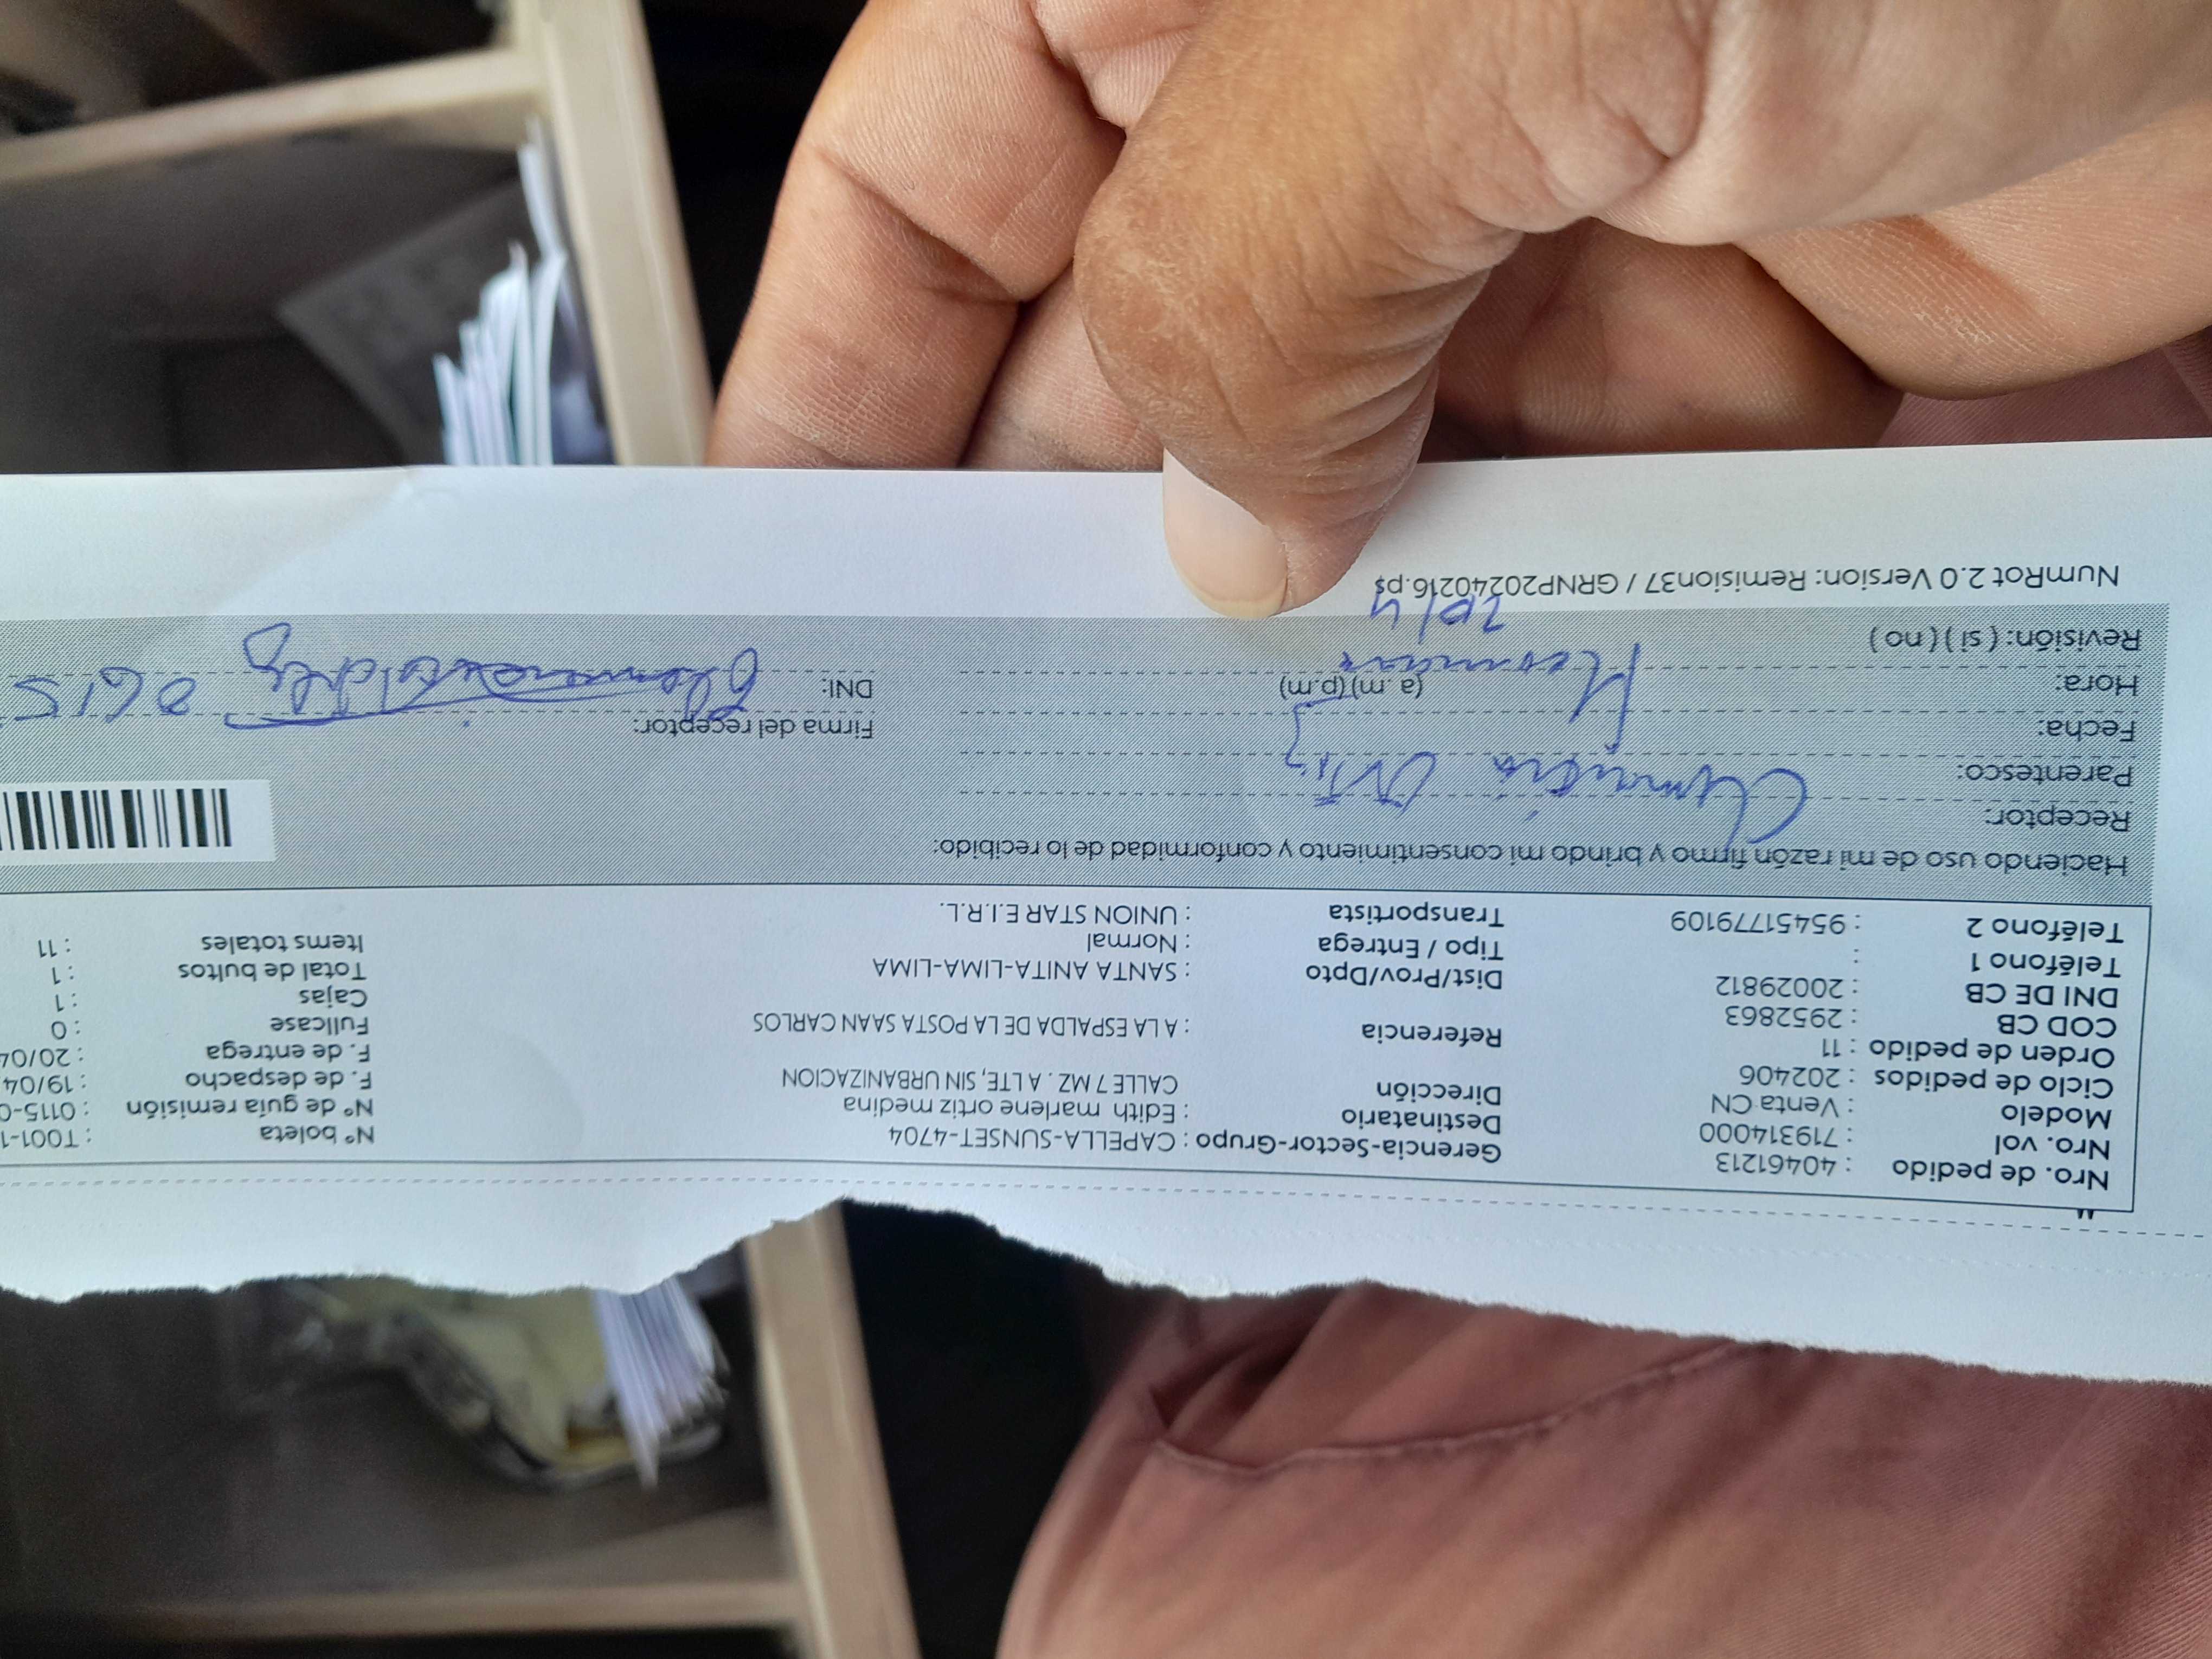 Nro. de pedido : 40461213
Nro. vol : 719314000
Modelo : Venta CN
Ciclo de pedidos : 202406
Orden de pedido : 11
COD CB : 2952863
DNI DE CB : 20029812
Teléfono 1 :
Teléfono 2 : 95451779109
Gerencia-Sector-Grupo : CAPELLA-SUNSET-4704
Destinatario : Edith marlene ortiz medina
Dirección CALLE 7 MZ . A LTE, SIN URBANIZACION
Referencia : A LA ESPALDA DE LA POSTA SAAN CARLOS
Dist/Prov/Dpto : SANTA ANITA-LIMA-LIMA
Tipo / Entrega : Normal
Transportista : UNION STAR E.I.R.L.
N° boleta : T001-1
N° de guía remisión : 0115-0
F. de despacho : 19/04
F. de entrega : 20/04
Fullcase : 0
Cajas : 1
Total de bultos : 1
Items totales : 11
Haciendo uso de mi razón firmo y brindo mi consentimiento y conformidad de lo recibido:
Receptor:
Parentesco:
Fecha:
Hora: (a.m)(p.m)
Revisión: ( si ) ( no )
20/4
Firma del receptor:
DNI:
0615
NumRot 2.0 Version: Remision37 / GRNP20240216.ps